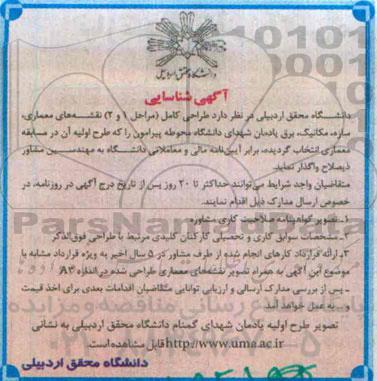 دانشگاه محقق اردبیلی
آگهی شناسایی
دانشگاه محقق اردبیلی در نظر دارد طراحی کامل (مراحل ۱ و ۲) نقشه‌های معماری،
سازه، مکانیک، برق یادمان شهدای دانشگاه محوطه پیرامون را که طرح اولیه آن در مسابقه
معماری انتخاب گردیده، برابر آیین‌نامه مالی و معاملاتی دانشگاه به مهندسین مشاور
ذیصلاح واگذار نماید.
متقاضیان واجد شرایط می‌توانند حداکثر تا ۲۰ روز پس از تاریخ درج آگهی در روزنامه، در
خصوص ارسال مدارک ذیل اقدام نمایند.
۱- تصویر گواهینامه صلاحیت کاری مشاوره
۲- مشخصات سوابق کاری و تحصیلی کارکنان کلیدی مرتبط با طراحی فوق‌الذکر
۳- ارائه قرارداد کارهای انجام شده از طرف مشاور در ۵ سال اخیر به ویژه قرارداد مشابه با
موضوع این آگهی به همراه تصویر نقشه‌های معماری طراحی شده در اندازه A۳
- پس از بررسی مدارک ارسالی و ارزیابی توانایی متقاضیان اقدامات بعدی برای اخذ قیمت
و به عمل خواهد آمد.
تصویر طرح اولیه یادمان شهدای گمنام دانشگاه محقق اردبیلی به نشانی
http://www.uma.ac.ir قابل مشاهده است.
دانشگاه محقق اردبیلی